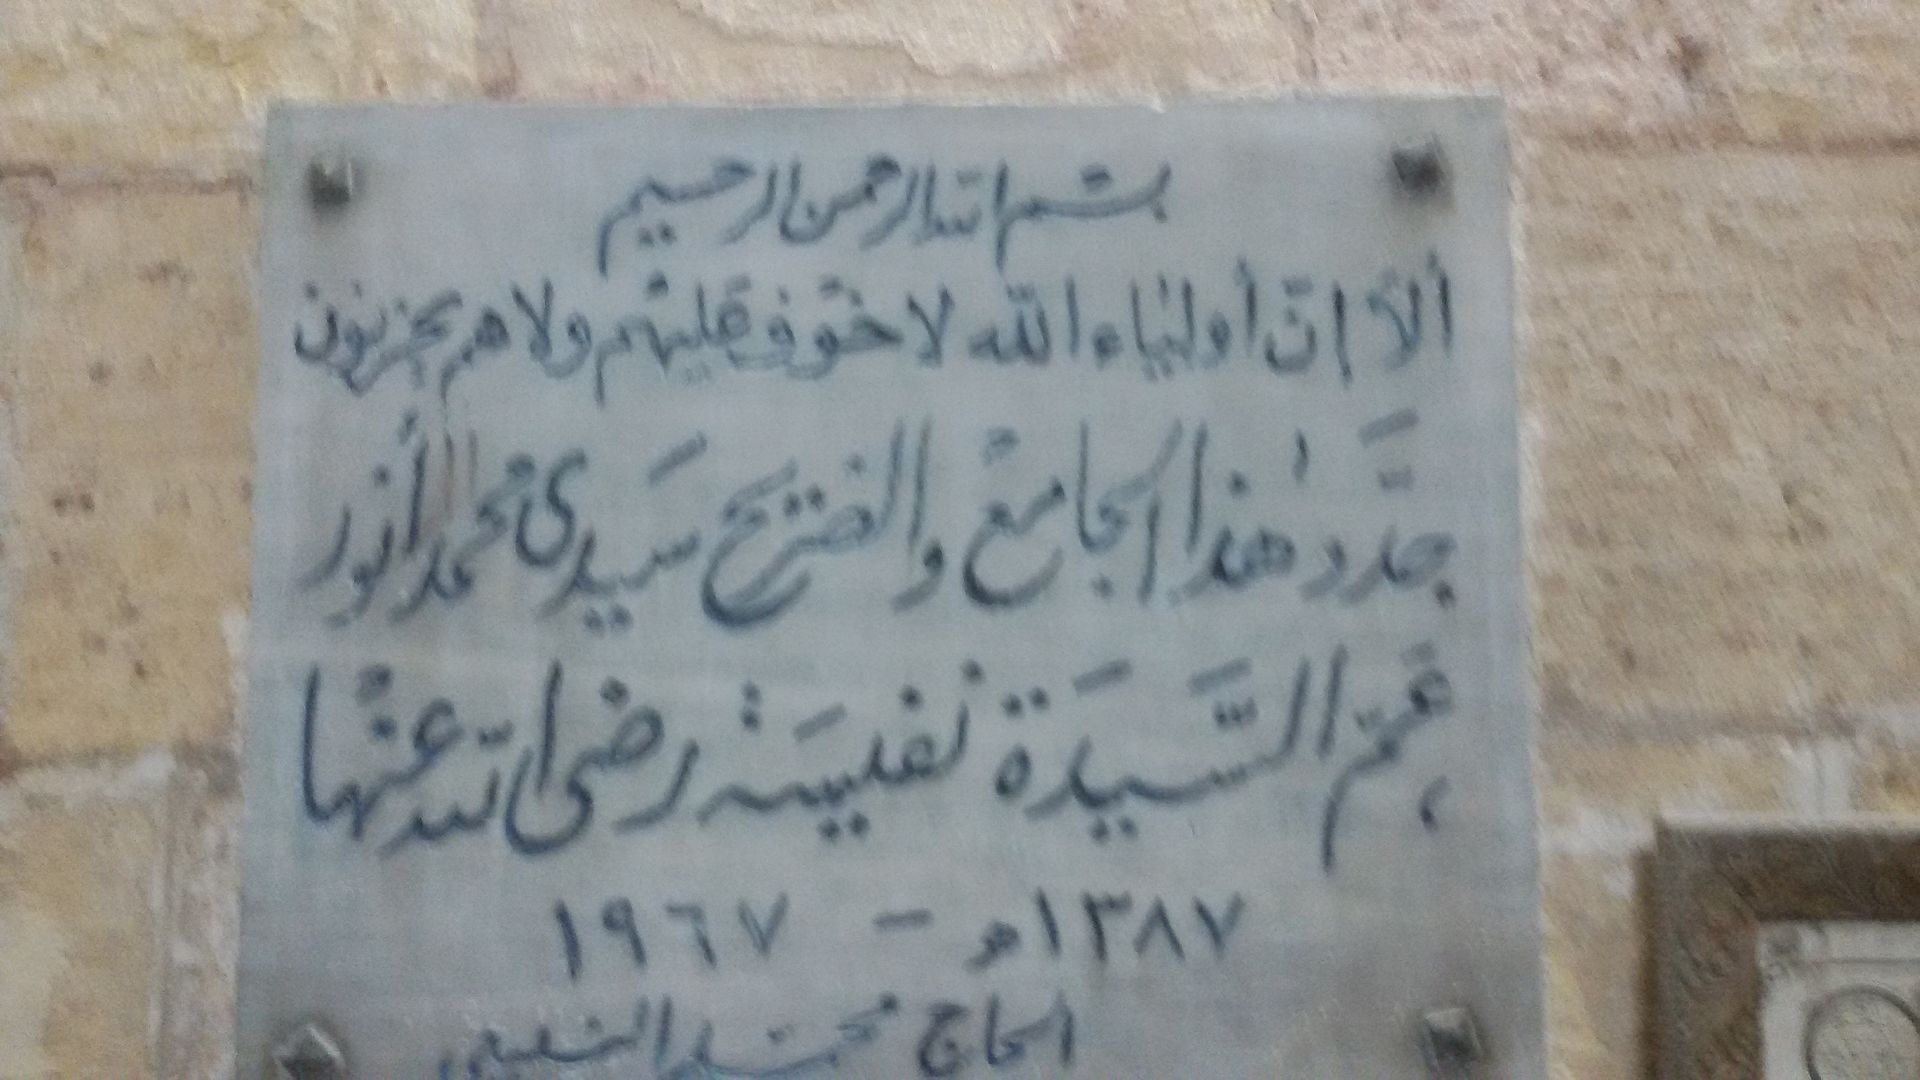 بسم الله الرحمن الرحيم
ألا إنّ أولياء الله لا خوف عليهم ولا هم يحزنون
جدَّد هٰذا الجامع والضريح سيدى محمد الأنور
عم السَّيدَة نفيسَة رضى الله عنها
١٣٨٧هـ - ١٩٦٧
الحاج محمد